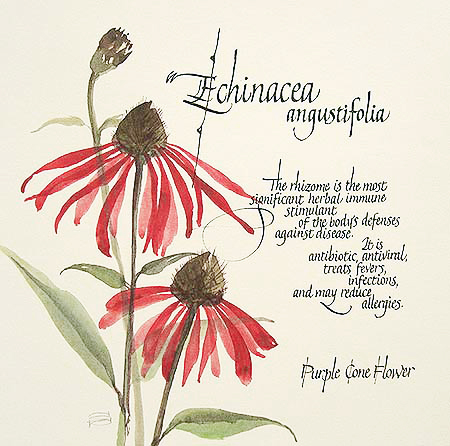 Echinacea
angustifolia
The rhizome is the most
significant herbal immune
stimulant
of the body's defenses
against disease.
It is
antibiotic, antiviral,
treats fevers,
infections,
and may reduce
allergies.
Purple Cone Flower